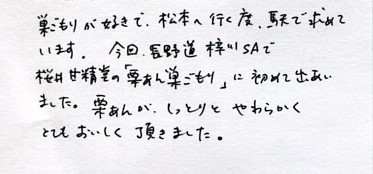 巣ごもりが好きで、松本へ行く度、駅で求めて
います。 今回、長野道 梓川SAで
桜井甘精堂の「栗あん巣ごもり」に初めて出あい
ました。栗あんが、しっとりと やわらかく
とても おいしく 頂きました。